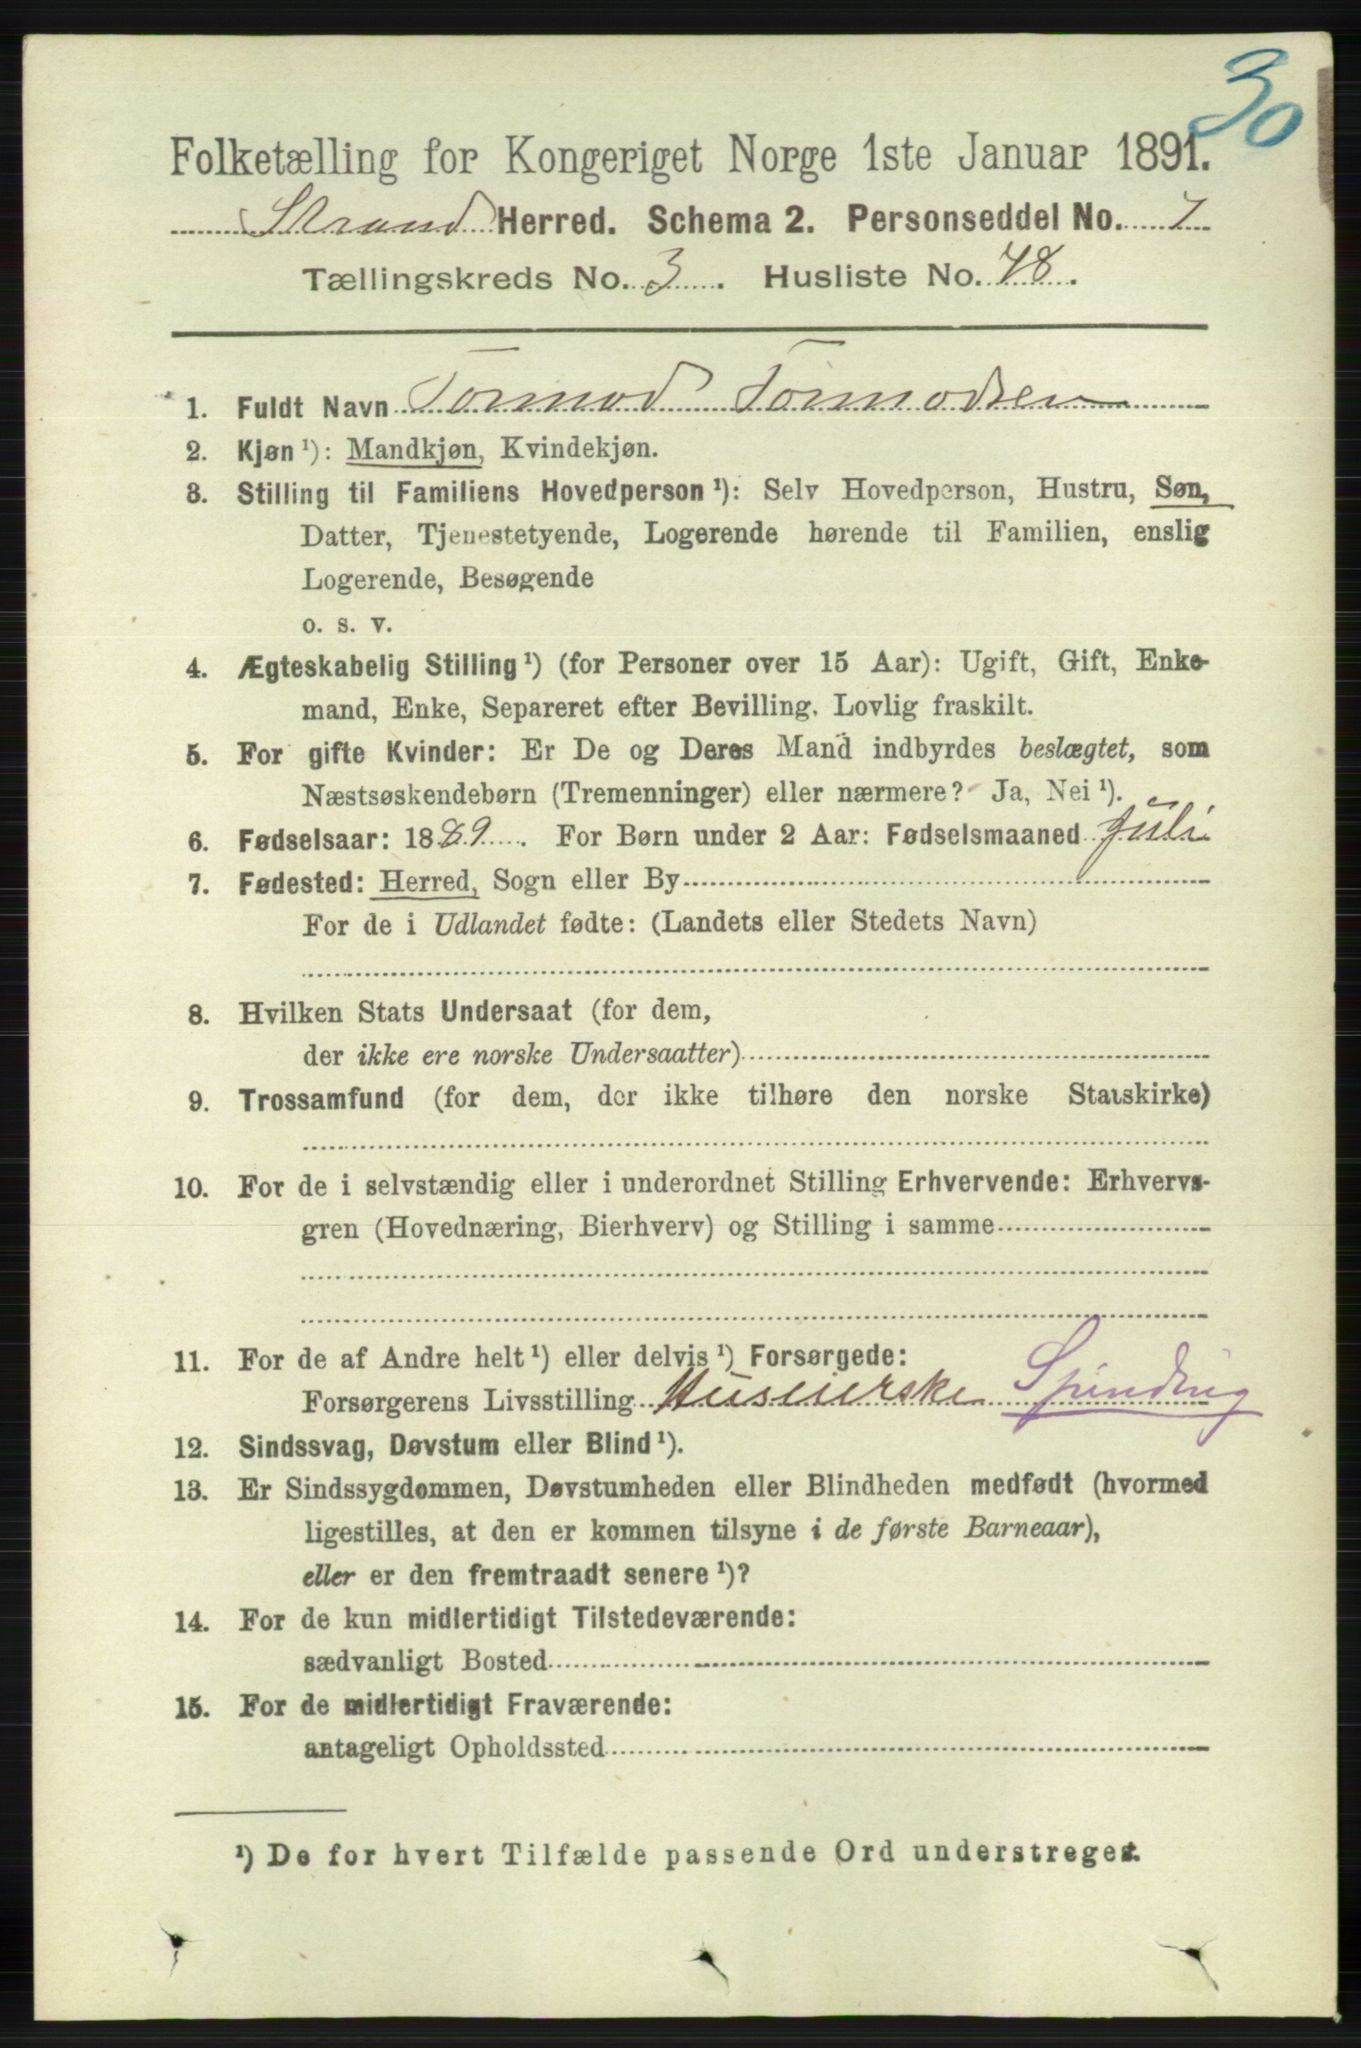 30
Folketælling for Kongeriget Norge 1ste Januar 1891.
Strand Herred. Schema 2. Personseddel No. 7
Tællingskreds No. 3. Husliste No. 48.
1. Fuldt Navn Tormod Tormodsen
2. Kjøn ¹): Mandkjøn, Kvindekjøn.
3. Stilling til Familiens Hovedperson ¹): Selv Hovedperson, Hustru, Søn,
Datter, Tjenestetyende, Logerende hørende til Familien, enslig
Logerende, Besøgende
o. s. v.
4. Ægteskabelig Stilling ¹) (for Personer over 15 Aar): Ugift, Gift, Enke-
mand, Enke, Separeret efter Bevilling. Lovlig fraskilt.
5. For gifte Kvinder: Er De og Deres Mand indbyrdes beslægtet, som
Næstsøskendebørn (Tremenninger) eller nærmere? Ja, Nei ¹).
6. Fødselsaar: 1889. For Børn under 2 Aar: Fødselsmaaned Juli
7. Fødested: Herred, Sogn eller By
For de i Udlandet fødte: (Landets eller Stedets Navn)
8. Hvilken Stats Undersaat (for dem,
der ikke ere norske Undersaatter)
9. Trossamfund (for dem, der ikke tilhøre den norske Statskirke)
10. For de i selvstændig eller i underordnet Stilling Erhvervende: Erhvervs-
gren (Hovednæring, Bierhverv) og Stilling i samme
11. For de af Andre helt ¹) eller delvis ¹) Forsørgede:
Forsørgerens Livsstilling Huseierske Spinding
12. Sindssvag, Døvstum eller Blind ¹).
13. Er Sindssygdommen, Døvstumheden eller Blindheden medfødt (hvormed
ligestilles, at den er kommen tilsyne i de første Barneaar),
eller er den fremtraadt senere ¹)?
14. For de kun midlertidigt Tilstedeværende:
sædvanligt Bosted
15. For de midlertidigt Fraværende:
antageligt Opholdssted
¹) De for hvert Tilfælde passende Ord understreges.